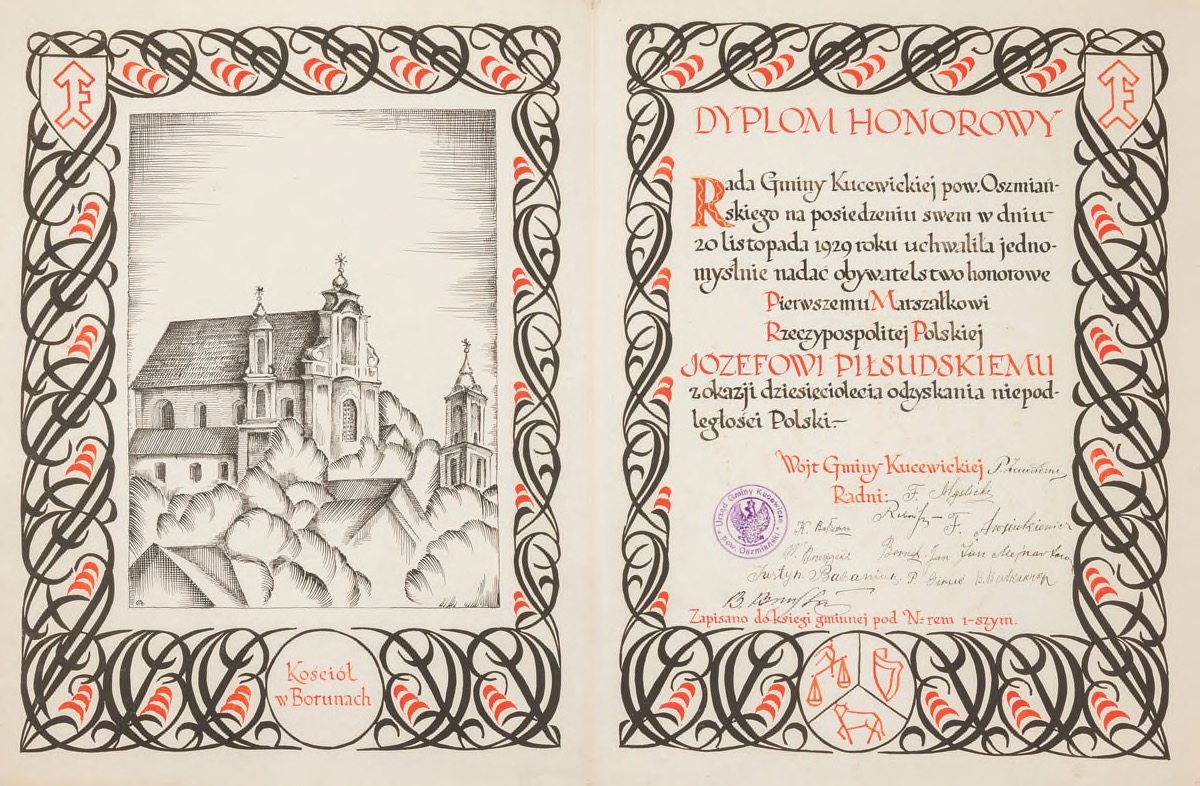 Kościół
w Borunach
DYPLOM HONOROWY
Rada Gminy Kucewickiej pow. Oszmiań-
skiego na posiedzeniu swem w dniu
20 listopada 1929 roku uchwaliła jedno-
myślnie nadać obywatelstwo honorowe
Pierwszemu Marszałkowi
Rzeczypospolitej Polskiej
JÓZEFOWI PIŁSUDSKIEMU
z okazji dziesięciolecia odzyskania niepod-
ległości Polski.—
Wójt Gminy Kucewickiej
Radni: F. Myślicki
Urząd Gminy Kucewicze
pow. Oszmiański
Jan
Justyn
Zapisano do księgi gminnej pod N-rem 1-szym.